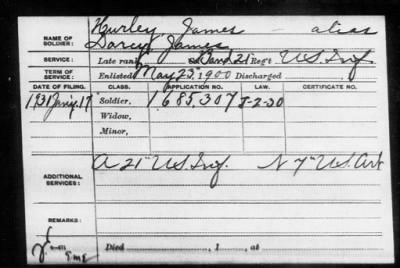 Hurley, James — alias
NAME OF SOLDIER: Darcy, James
SERVICE: Late rank, Co. 21" Reg't U.S. Inf.
TERM OF SERVICE: Enlisted May 23", 1900 Discharged
DATE OF FILING. CLASS. APPLICATION NO. LAW. CERTIFICATE NO.
1931 Jan'y. 17 Soldier, 1,685,307 5-2-30
Widow,
Minor,
A 21" U.S. Inf. N 7" U.S. Art
ADDITIONAL SERVICES:
REMARKS:
Died , 1 , at